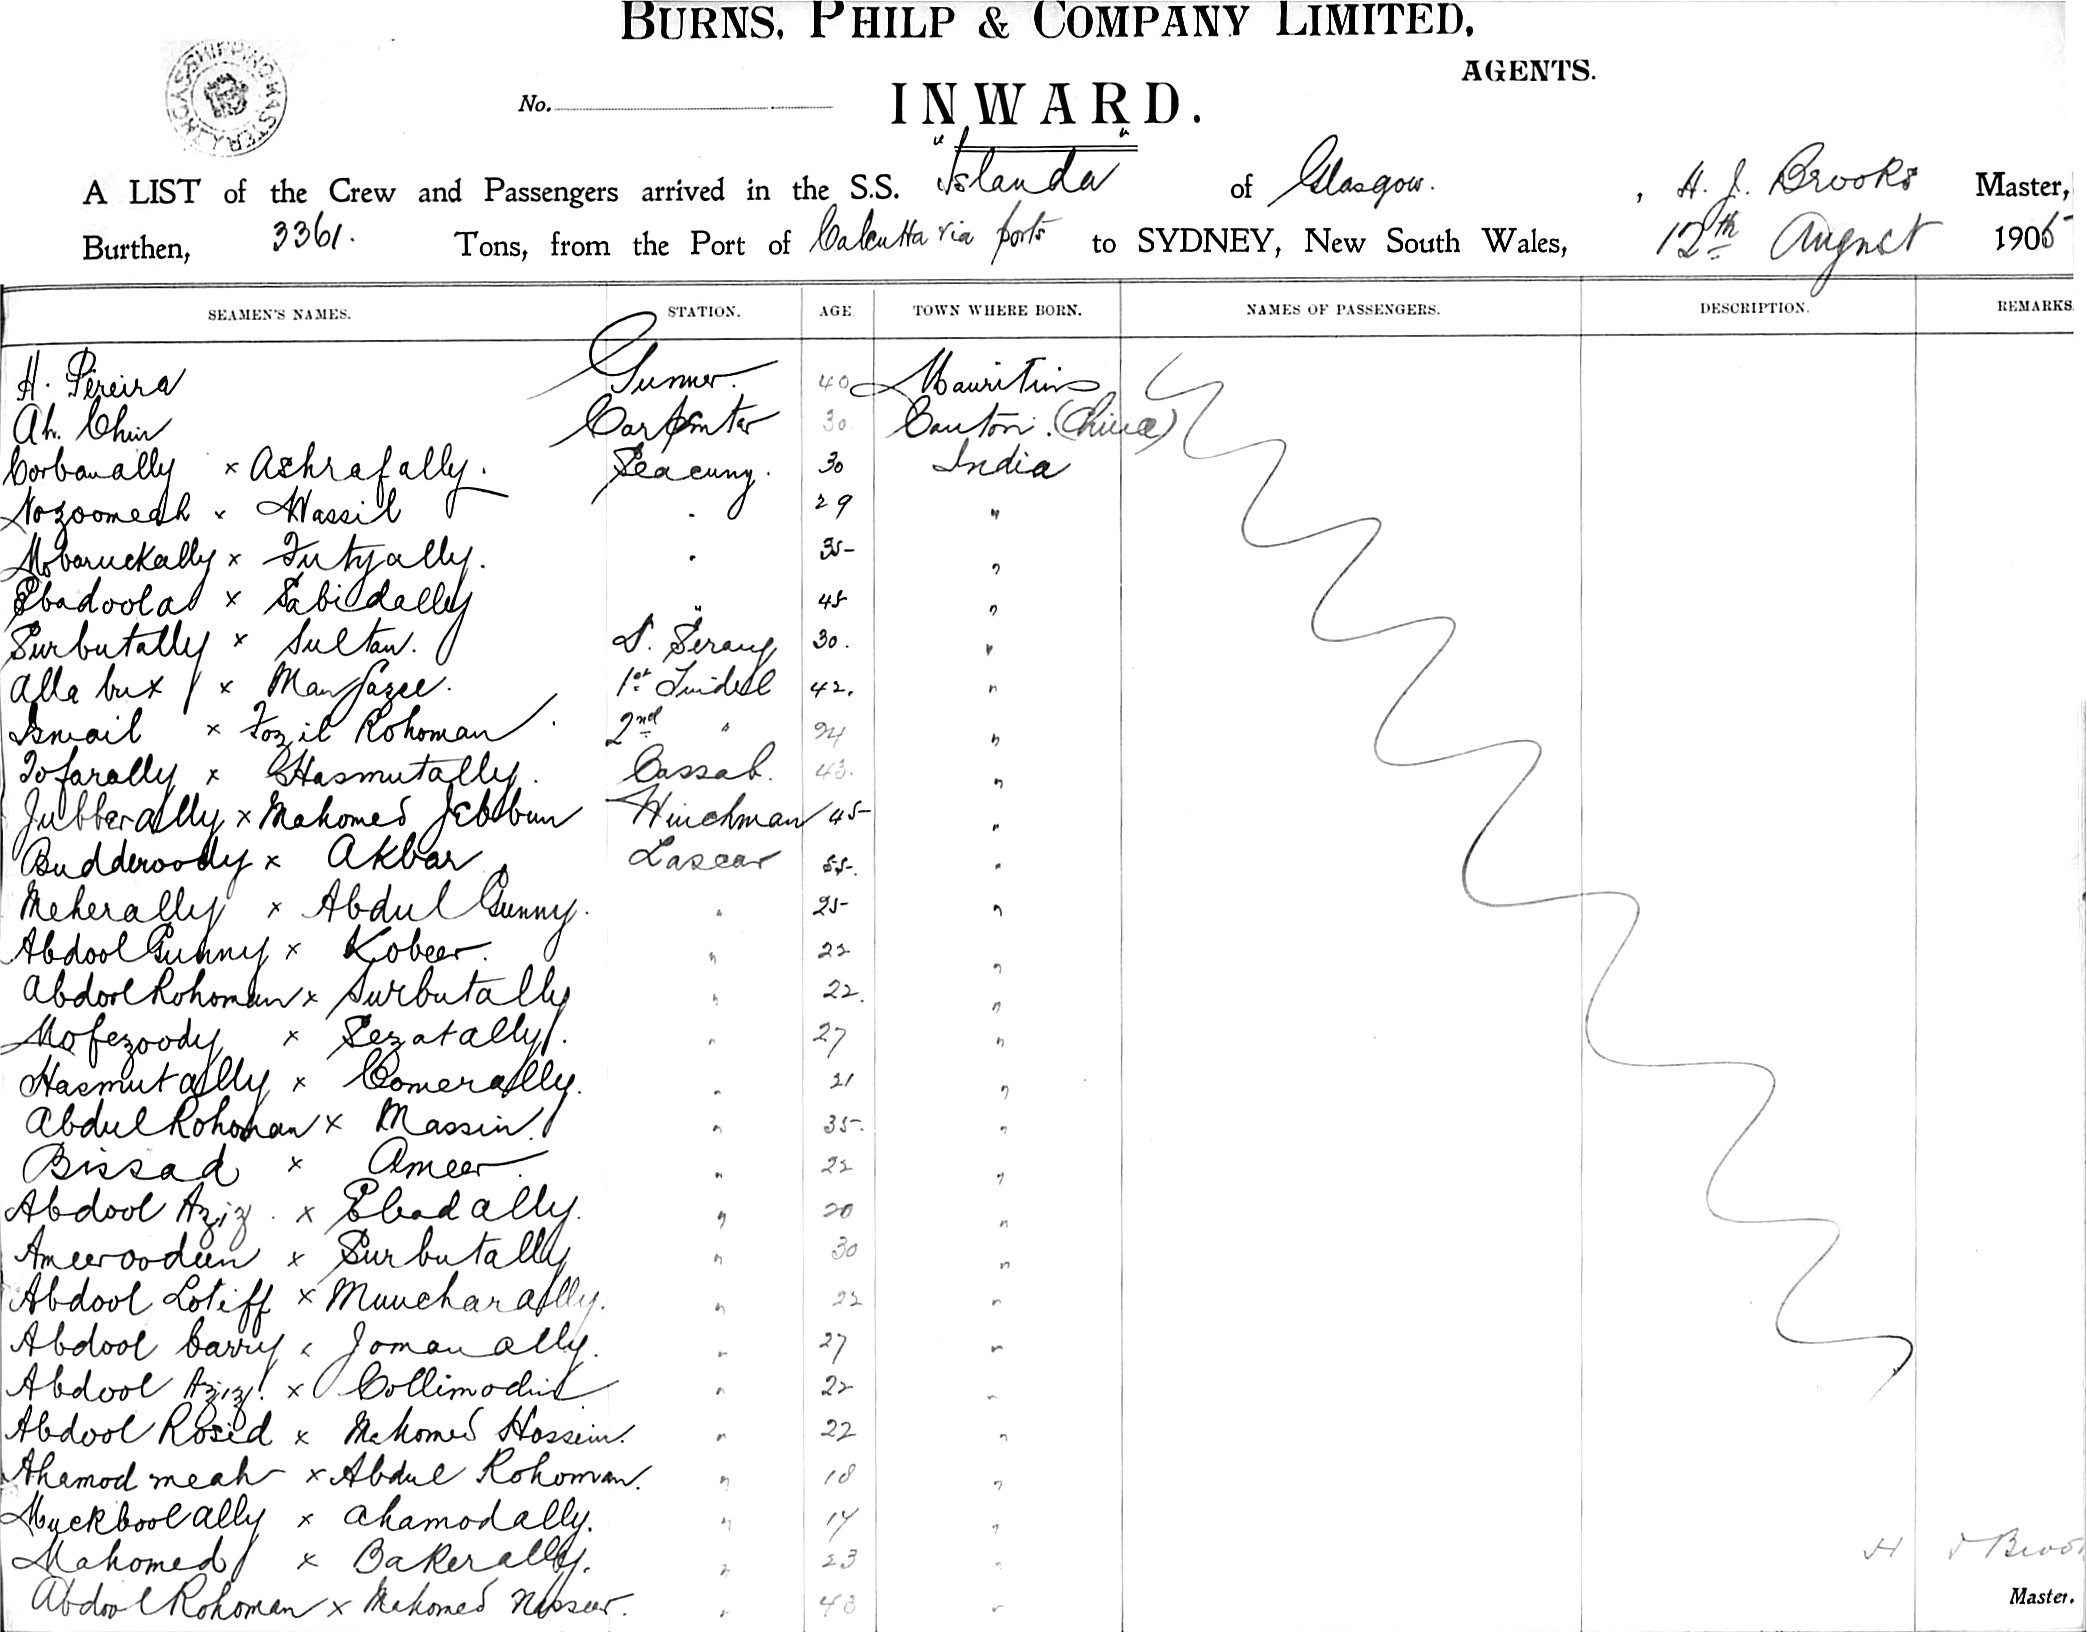 BURNS, PHILP & COMPANY LIMITED,
AGENTS.
No.
INWARD.
A LIST of the Crew and Passengers arrived in the S.S. "Islanda" of Glasgow. , H. J. Brooks Master,
Burthen, 3361. Tons, from the Port of Calcutta via ports to SYDNEY, New South Wales, 12th August 1905
SEAMEN'S NAMES. STATION. AGE TOWN WHERE BORN. NAMES OF PASSENGERS. DESCRIPTION. REMARKS
H. Pereira Gunner. 40 Mauritius
Ah. Chin Carpenter 30 Canton. (China)
Corbanally x Ashrafally. Seacuny. 30 India
Nozoomeah x Wassil . 29 "
Mobaruckally x Futyally. . 35 "
Ebadoola x Sabidally " 45 "
Surbutally x Sultan. D. Serang 30. "
Alla bux x Mangazee. 1st Tindal 42. "
Ismail x Fozil Rohoman. 2nd " "
Tofarally x Hasmutally. Cassab. 43. "
Jubberally x Mahomed Jebbun Winchman 45 "
Budderoody x Akbar Lascar 55. "
Meherally x Abdul Gunny. " 25 "
Abdool Gunny x Kobeer. " 22 "
Abdool Rohoman x Surbutally " 22. "
Mofezoody x Sezatally. " 27 "
Hasmutally x Comerally. " 21 "
Abdul Rohoman x Massin. " 35. "
Bissad x Ameer. " 22 "
Abdool Aziz. x Ebadally. " 20 "
Ameeroodeen x Surbutally " 30 "
Abdool Lotiff x Muucharally. " 22 "
Abdool barry x Jomanally. " 27 "
Abdool Aziz. x Collimodin " 22 "
Abdool Rosid x Mahomed Hossein. " 22 "
Ahamod meah x Abdul Rohoman. " 18 "
Muckboolally x Ahamodally. " "
Mahomed x Bakerally. " 23 "
H J Brook
Abdool Rohoman x Mahomed Nasseer. " 40 "
Master.